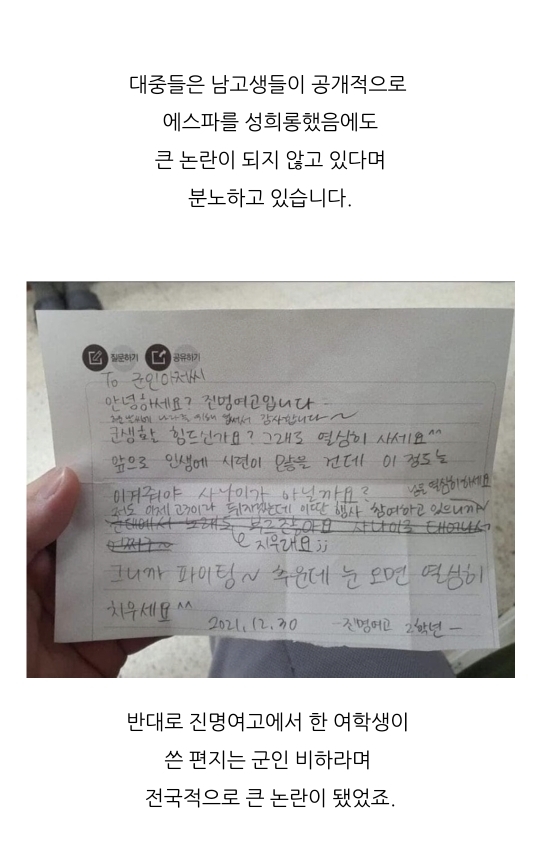 대중들은 남고생들이 공개적으로
에스파를 성희롱했음에도
큰 논란이 되지 않고 있다며
분노하고 있습니다.
질문하기 공유하기
To 군인아저씨
안녕하세요? 진명여고입니다
추운 날씨에 나라를 위해 힘써서 감사합니다~
군생활 힘드신가요? 그래도 열심히 사세요^^
앞으로 인생에 시련이 많을 건데 이 정도는
이겨줘야 사나이가 아닐까요?
저도 이제 고3이라 뒤지겠는데 이딴 행사 참여하고 있으니까~
님은 열심히하세요
군대에서 노래도 부르잖아요 사나이로 태어나서
어쩌구~
지우래요;;
그니까 파이팅~ 추운데 눈 오면 열심히
치우세요^^
2021.12.30 -진명여고 2학년-
반대로 진명여고에서 한 여학생이
쓴 편지는 군인 비하라며
전국적으로 큰 논란이 됐었죠.